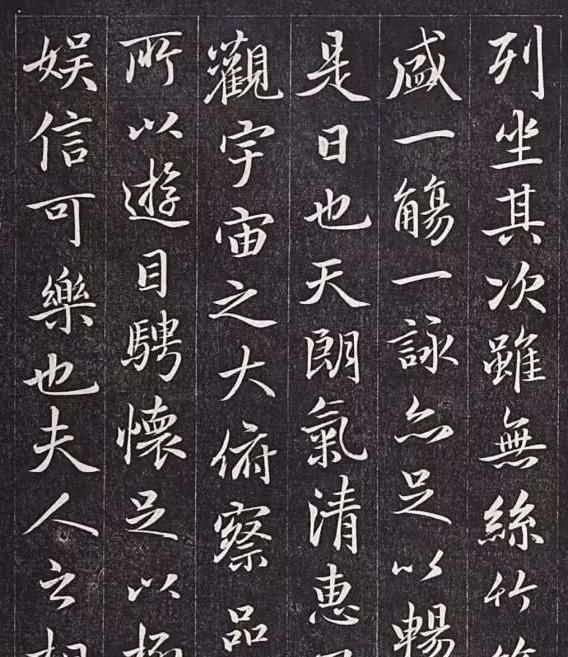 列坐其次雖無絲竹
盛一觴一詠亦足以暢
是日也天朗氣清惠
觀宇宙之大俯察品
所以遊目騁懷足以極
娛信可樂也夫人之相